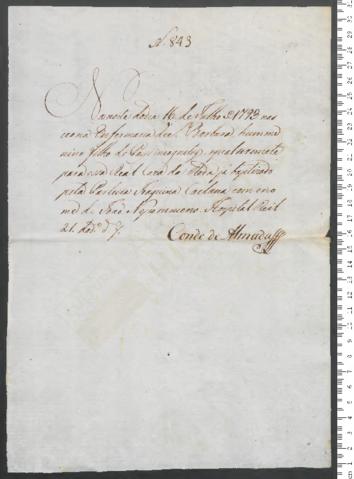 N. 843
Na noite do dia 16 de Julho de 1793 nas
ceo na Enfermaria de S. Barbara hum me
nino filho de Pais incognitos, que he remetido
para essa Real Caza da Roda, ja baptizado
pela Parteira Joaquina Caetana, com o no
me de João Nepomuceno. Hospital Real
21. do do. d
Conde de Almada